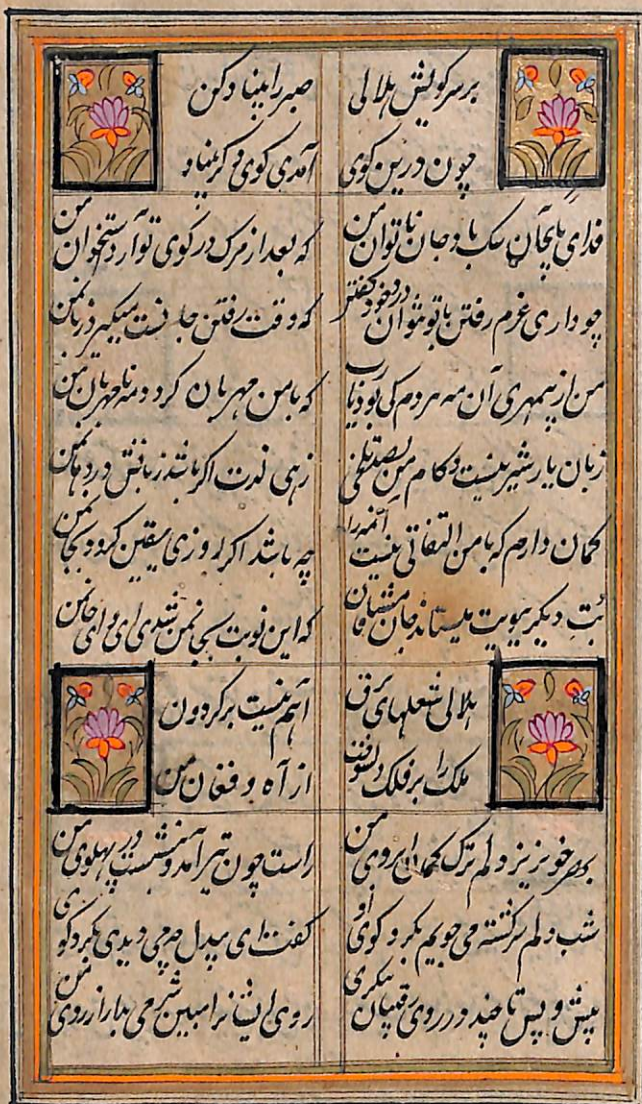 بر سر کویش هلالی
صبر را بنیاد کن
چون درین کوی
آمدی کوی دگر بنیاد
فدای پای آن سک باد جان ناتوان من
که بعد از مرک در کوی تو آرد استخوان من
چو داری عزم رفتن با تو نتوان درد خود گفتن
که وقت رفتن جانست میگیرد زبان من
من از بیمهری آن مه مردم کی بود یارب
که با من مهربان گردد مه نامهربان من
زبان یار شیرینست و کام من بصد تلخی
زهی لذت اگر باشد زبانش در دهان من
گمان دارم که با من التفاتی نیست آنمه را
چه باشد اگر روزی یقین گردد گمان من
بت دیگر ببویت میستاند جان مشتاقان
که این نوبت بجانمن شدی ای وای جانمن
هلالی شعلهای برق
آهم نیست بر گردون
ملک را بر فلک دلسوخت
از آه و فغان من
بهر خونریز دلم ترک کمان ابروی من
راست چون تیر آمد و بنشست در پهلوی من
شب دلم سرگشته می جویم بگرد کوی او
گفت ای بیدل چه می دیدی بگرد کوی
پیش و پس تا چند در روی رقیبان بنگری
روی ایشانرا مبین شرمی بدار از روی من